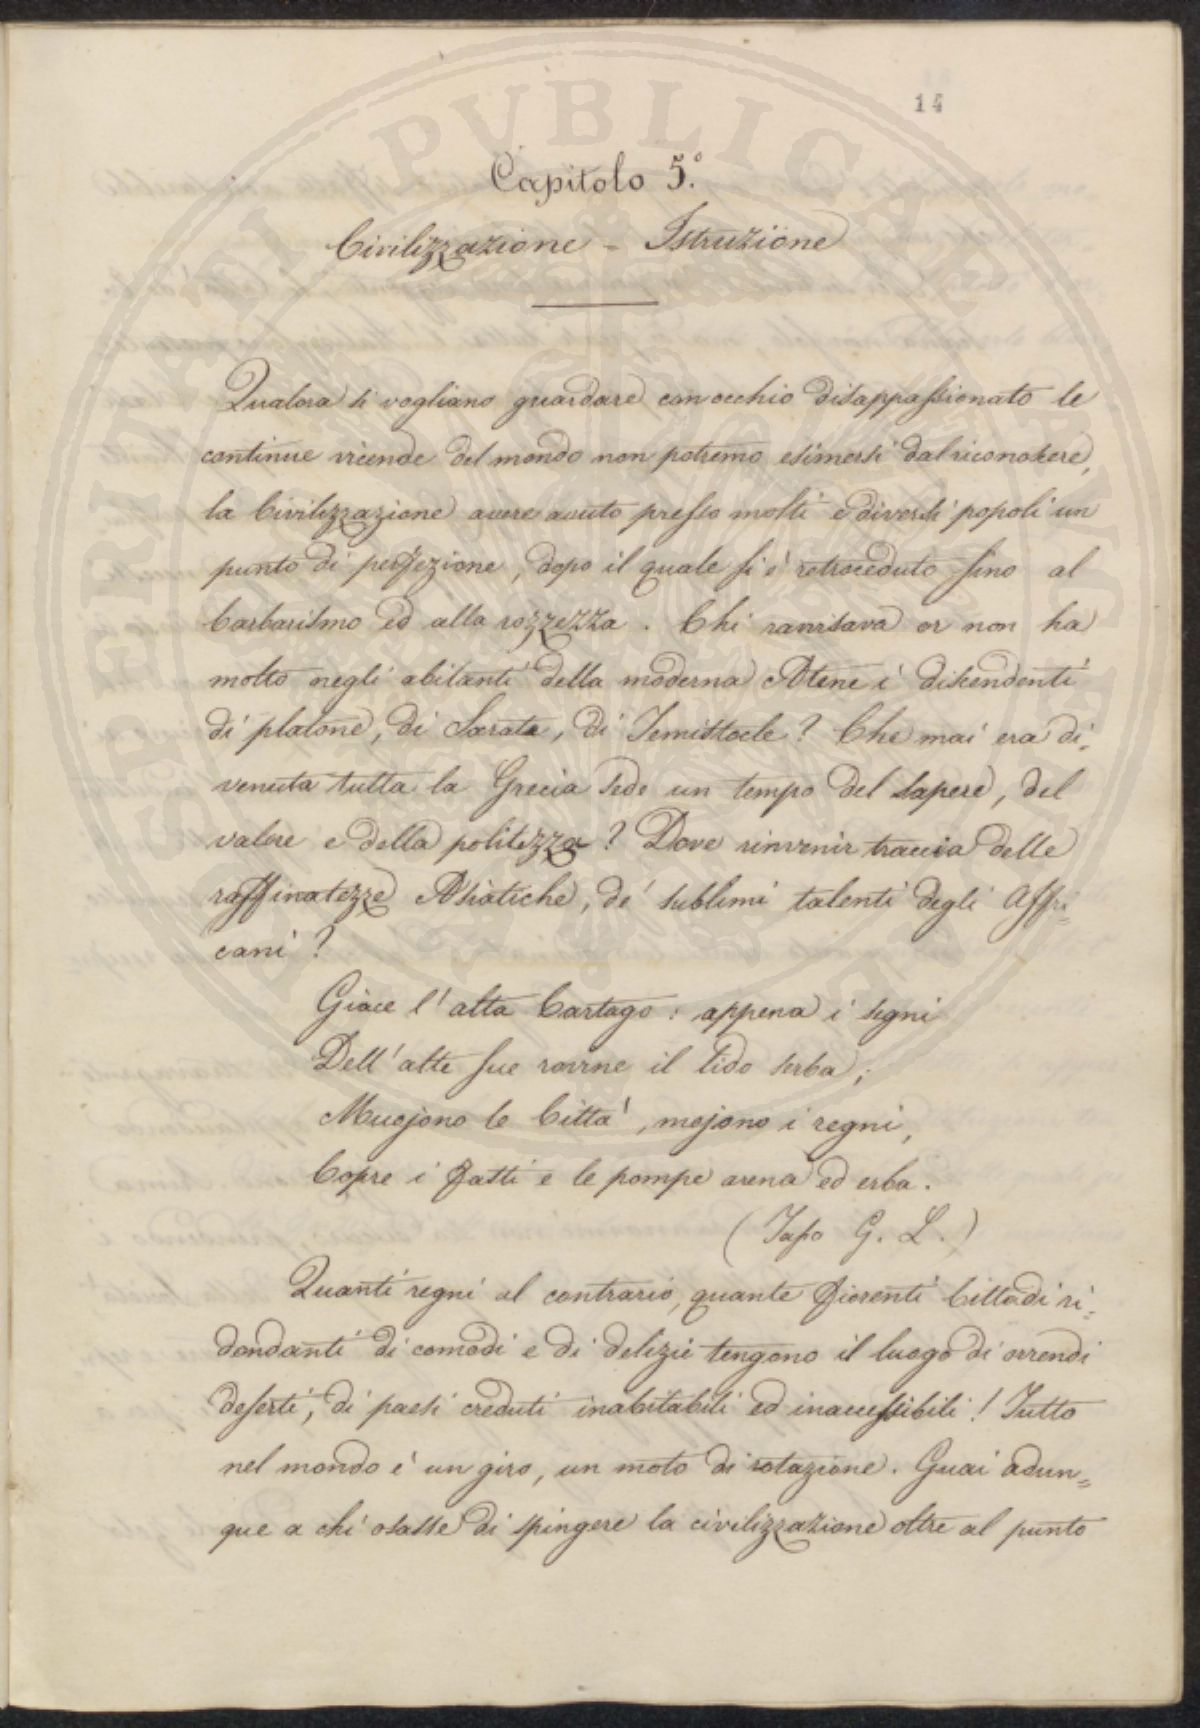 14
Capitolo 5.º
Civilizzazione - Istruzione
Qualora si vogliano guardare con occhio disappassionato le
continue vicende del mondo non potremo esimersi dal riconoscere,
la Civilizzazione avere avuto presso molti e diversi popoli un
punto di perfezione, dopo il quale si è retroceduto fino al
barbarismo ed alla rozzezza. Chi ravvisava or non ha
molto negli abitanti della moderna Atene i discendenti
di platone, di Socrate, di Temistocle? Che mai era di=
venuta tutta la Grecia sede un tempo del sapere, del
valore e della politezza? Dove rinvenir traccia delle
raffinatezze Asiatiche, de' sublimi talenti degli Affri=
cani?
Giace l'alta Cartago: appena i segni
Dell'alte sue rovine il lido serba;
Muojono le Città, mojono i regni,
Copre i fasti e le pompe arena ed erba.
(Tasso G. L.)
Quanti regni al contrario, quante fiorenti Città di ri=
dondanti di comodi e di delizie tengono il luogo di orrendi
deserti, di paesi creduti inabitabili ed inaccessibili! Tutto
nel mondo è un giro, un moto di rotazione. Guai adun=
que a chi osasse di spingere la civilizzazione oltre al punto